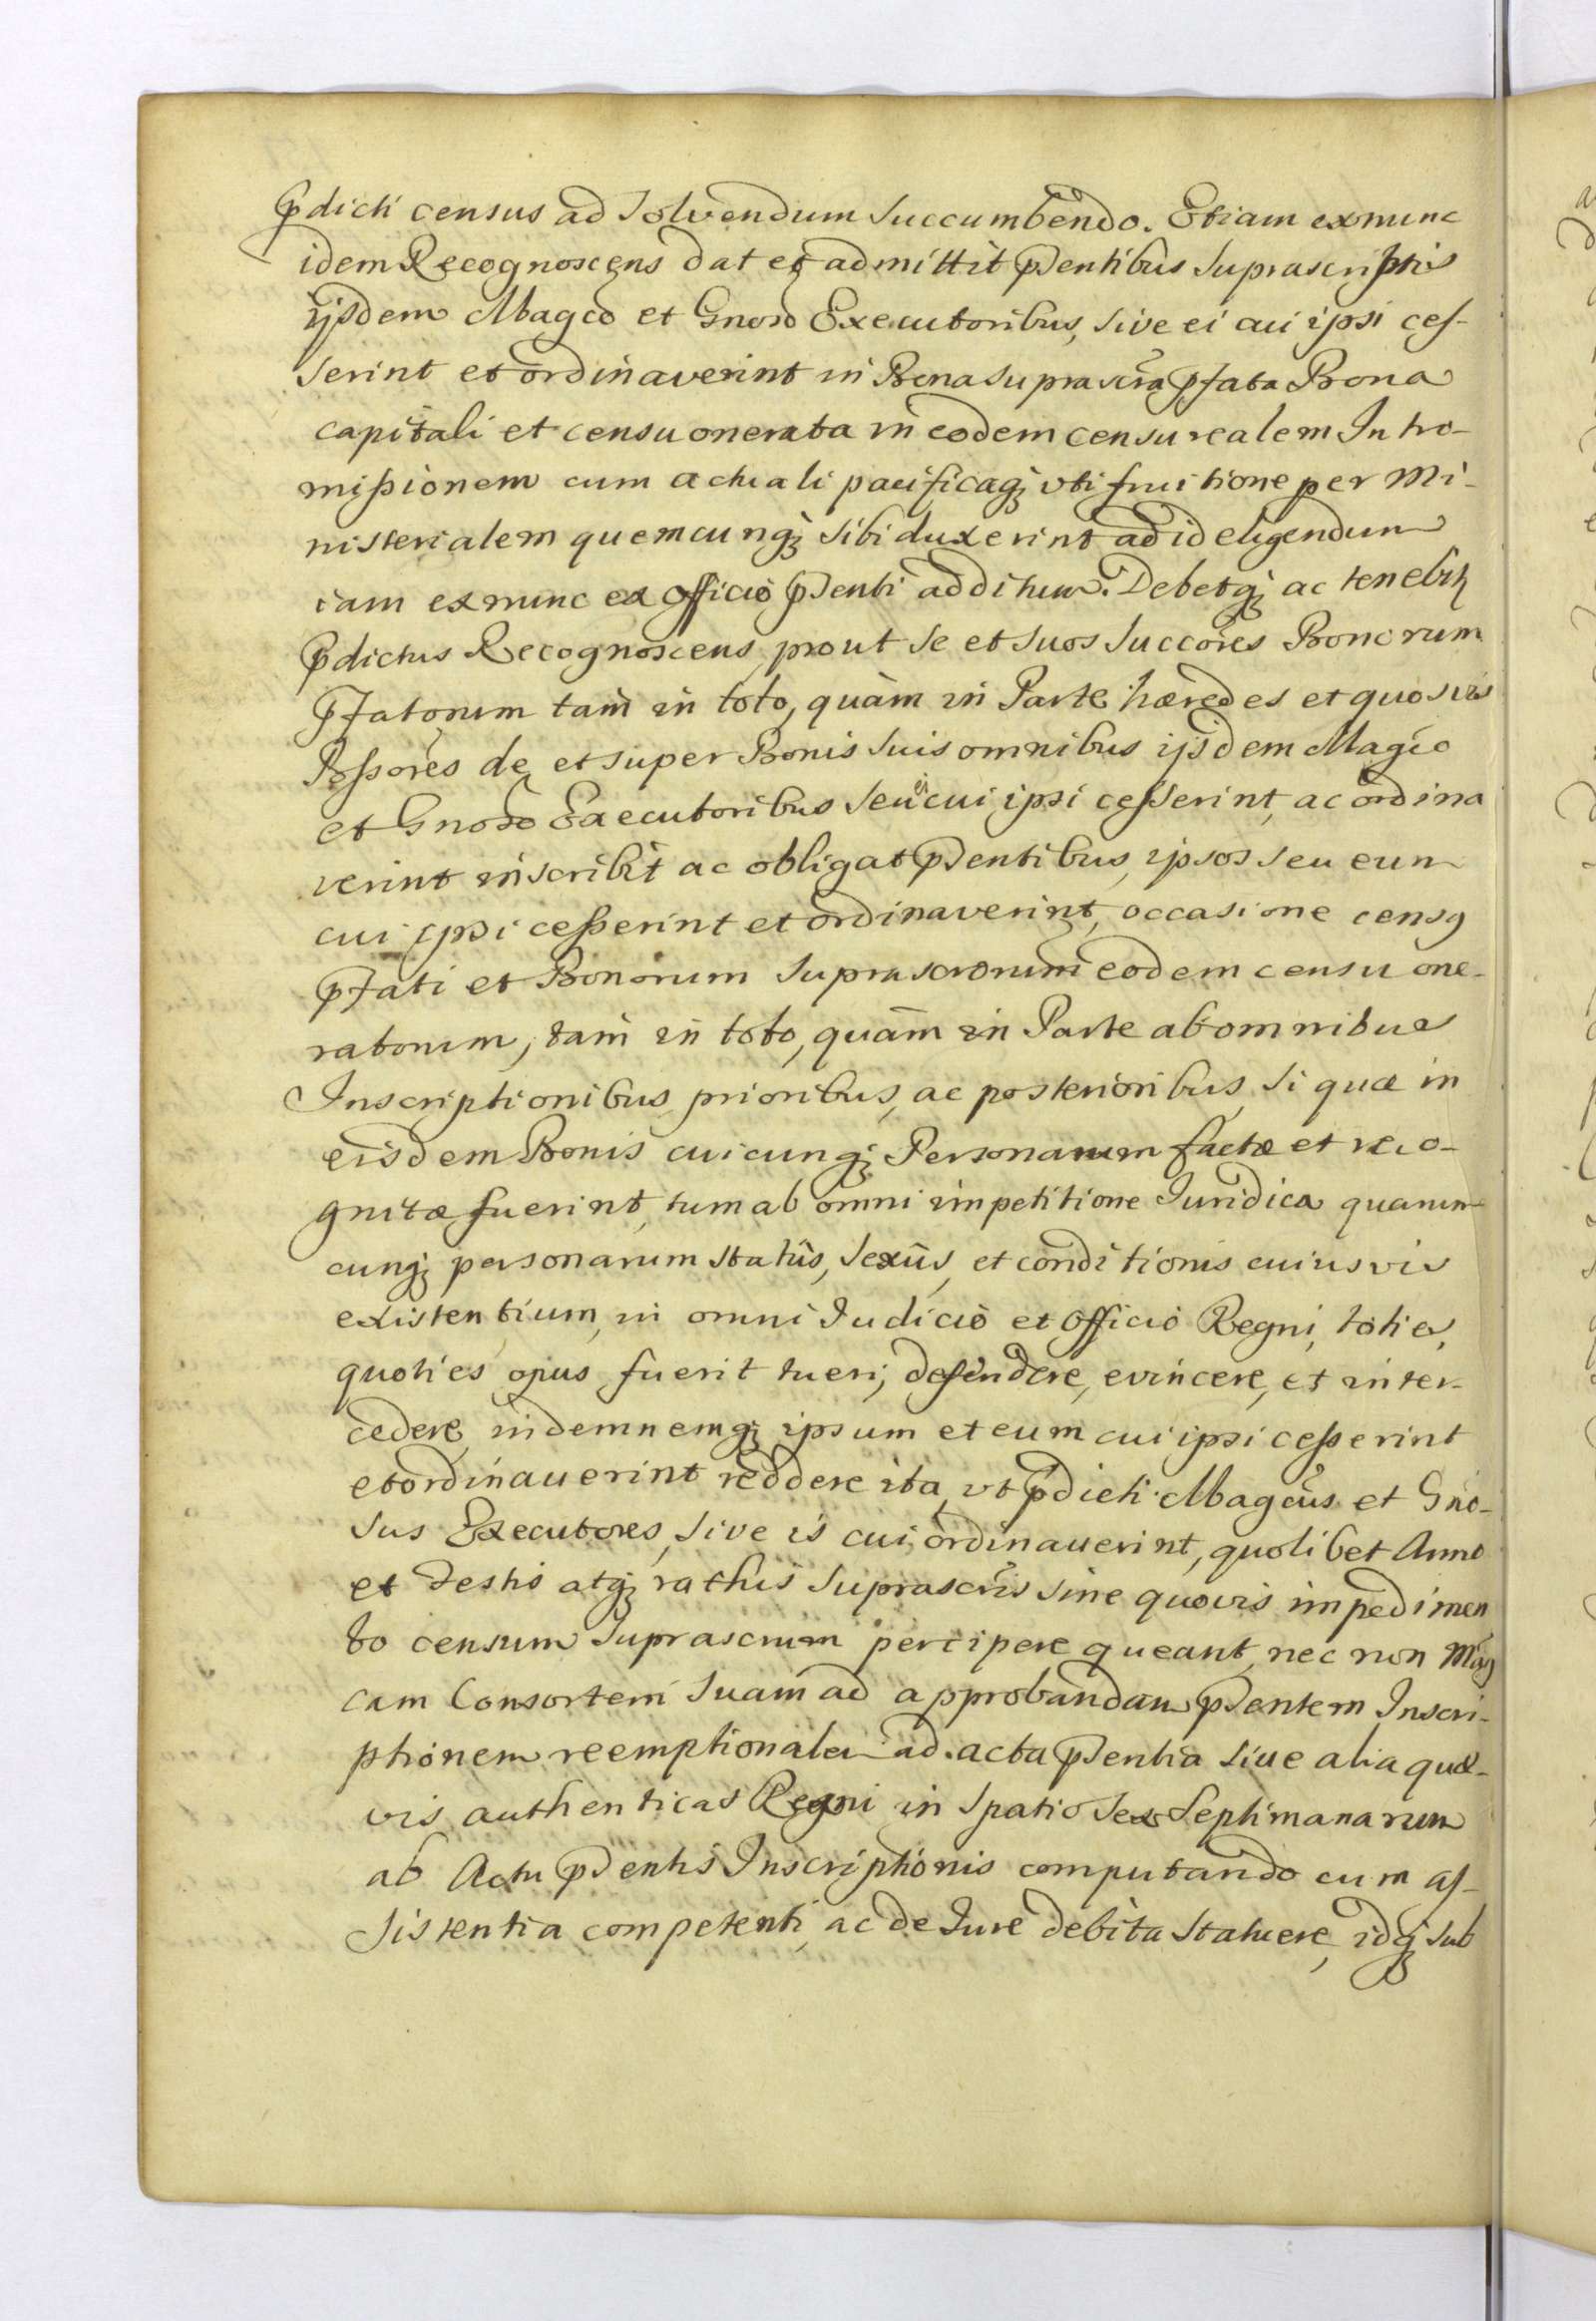 pdicti census ad solvendum succumbendo. Etiam exnunc
idem Recognoscens dat et admittit psentibus suprascriptis
ijsdem Magco et Gnoso Executoribus, sive ei cui ipsi ces-
serint et ordinaverint in Bona suprascra pfata Bona
capitali et censu onerata in eodem censu realem Intro-
missionem cum actuali pacificaq; uti fruitione per Mi-
nisterialem quemcunq; sibi duxerint ad id eligendum
iam exnunc ex officio psenti additum. Debetq; ac tenebit
pdictus Recognoscens prout se et suos succores Bonorum
pfatorum tam in toto, quàm in Parte hæredes et quosvis
Possores de et super Bonis suis omnibus ijsdem Magco
et Gnoso Executoribus seu ei cui ipsi cesserint, ac ordina
verint inscribit ac obligat psentibus, ipsos seu eum
cui ipsi cesserint et ordinaverint, occasione census
pfati et Bonorum suprascrorum eodem censu one-
ratorum, tam in toto, quàm in Parte ab omnibus
Inscriptionibus prioribus, ac posterioribus, si quæ in
eisdem Bonis cuicunq; Personarum factæ et reco-
gnitæ fuerint, tum ab omni impetitione Juridica quarum-
cunq; personarum statûs, sexûs, et conditionis cuiusvis
existentium, in omni Judicio et officio Regni, toties,
quoties opus fuerit tueri, defendere, evincere, et inter-
cedere, indemnemq; ipsum et eum cui ipsi cesserint
et ordinauerint reddere ita, vt pdicti Magcus et Gno-
sus Executores, sive is cui ordinauerint, quolibet Anno
et Festis atq; rathis suprascris sine quovis impedimen
to censum suprascrum percipere queant, nec non Mag
cam Consortem suam ad approbandam psentem Inscri-
ptionem reemptionalem ad acta psentia siue alia quæ-
vis authenticas Regni in spatio sex septimanarum
ab Actu psentis Inscriptionis computando cum as-
sistentia competenti, ac de Jure debita statuere, idq; sub